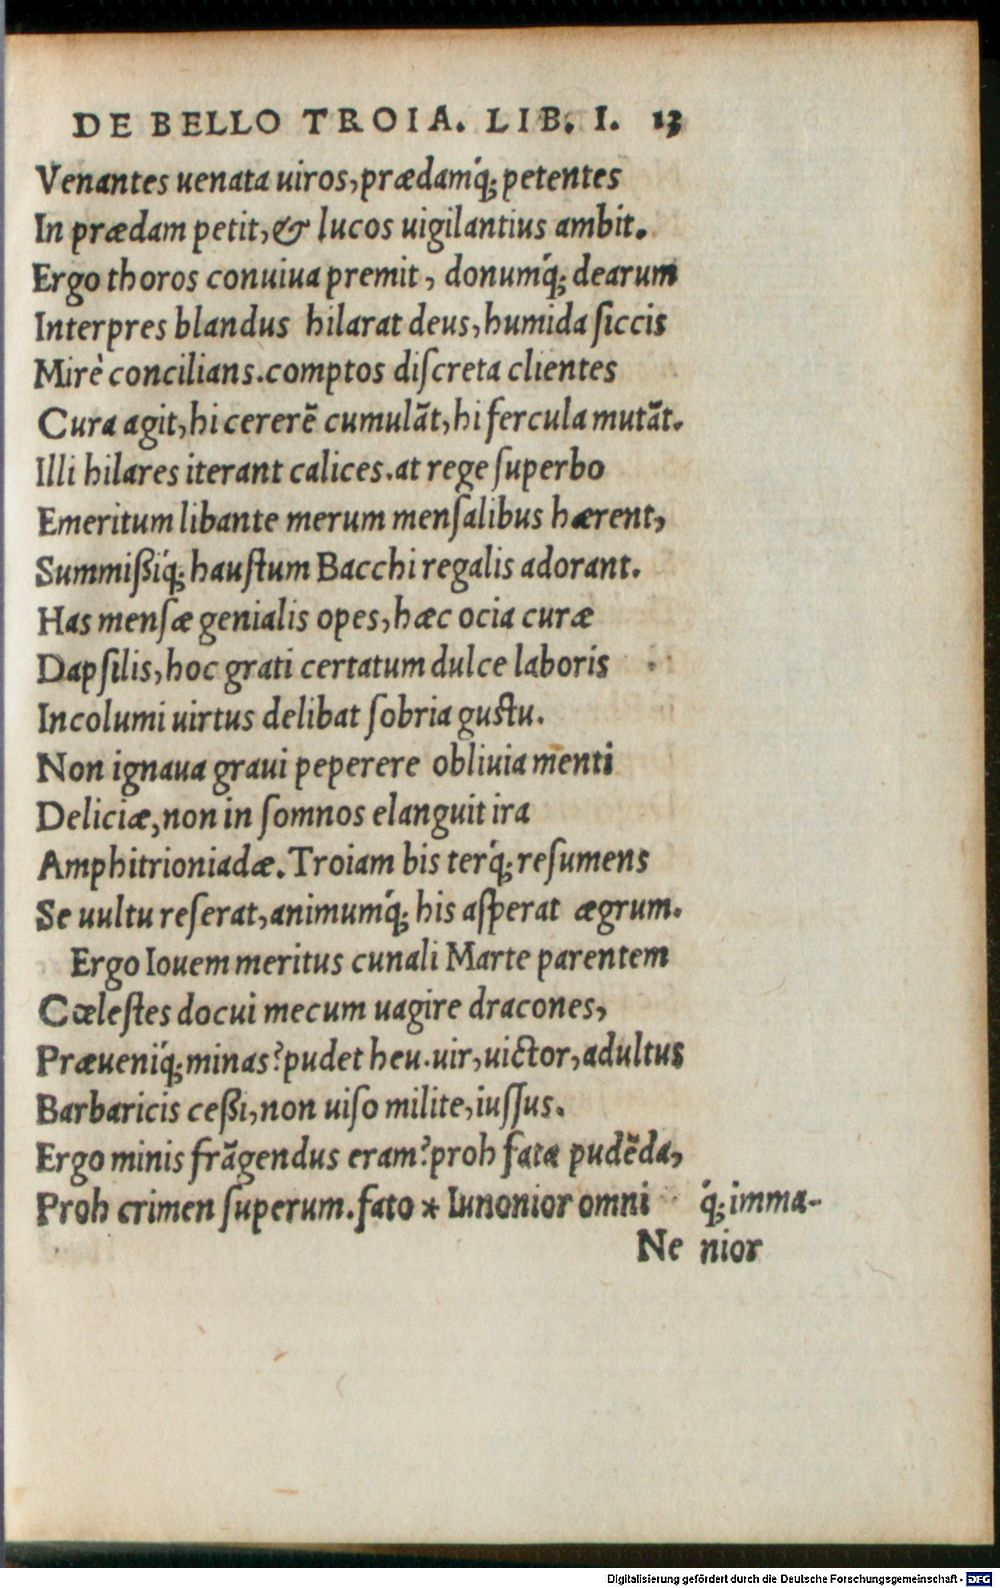 DE BELLO TROIA. LIB. I. 13
Venantes uenata uiros, prædamq́; petentes
In prædam petit, & lucos uigilantius ambit.
Ergo thoros conuiua premit, donumq́; dearum
Interpres blandus hilarat deus, humida ſiccis
Mirè concilians. comptos diſcreta clientes
Cura agit, hi cererẽ cumulãt, hi fercula mutãt.
Illi hilares iterant calices. at rege ſuperbo
Emeritum libante merum menſalibus hærent,
Summißiq́; hauſtum Bacchi regalis adorant.
Has menſæ genialis opes, hæc ocia curæ
Dapſilis, hoc grati certatum dulce laboris
Incolumi uirtus delibat ſobria guſtu.
Non ignaua graui peperere obliuia menti
Deliciæ, non in ſomnos elanguit ira
Amphitrioniadæ. Troiam bis terq́; reſumens
Se uultu reſerat, animumq́; his aſperat ægrum.
Ergo Iouem meritus cunali Marte parentem
Cœleſtes docui mecum uagire dracones,
Præueniq́; minas? pudet heu. uir, uictor, adultus
Barbaricis ceßi, non uiſo milite, iuſſus.
Ergo minis frãgendus eram? proh fata pudẽda,
Proh crimen ſuperum. fato * Iunonior omni q́; imma-
Ne nior
Digitalisierung gefördert durch die Deutsche Forschungsgemeinschaft - DFG